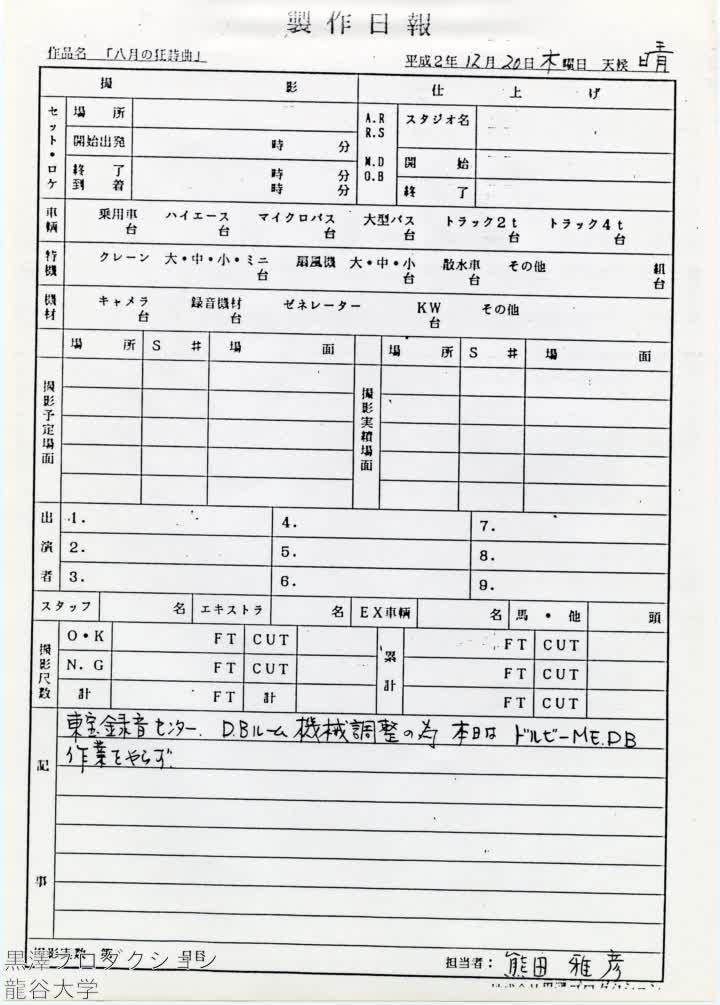 製作日報
作品名 「八月の狂詩曲」
平成2年 12月 20日 木曜日 天候 晴
撮影 仕上げ
セット・ロケ
場所
開始出発 時 分
終了 時 分
到着 時 分
A.R
R.S
M.D
O.B
スタジオ名
開始
終了
車輌 乗用車 台 ハイエース 台 マイクロバス 台 大型バス 台 トラック2t 台 トラック4t 台
特機 クレーン 大・中・小・ミニ 台 扇風機 大・中・小 台 散水車 台 その他 組 台
機材 キャメラ 台 録音機材 台 ゼネレーター KW 台 その他
撮影予定場面 場所 S# 場面
撮影実績場面 場所 S# 場面
出演者
1. 4. 7.
2. 5. 8.
3. 6. 9.
スタッフ 名 エキストラ 名 EX車輌 名 馬・他 頭
撮影尺数
O・K FT CUT
N.G FT CUT
計 FT 計
累計
FT CUT
FT CUT
FT CUT
記事
東宝録音センター. D.Bルーム 機械調整の為 本日は ドルビーME.DB
作業をやらず.
担当者: 熊田 雅彦
黒澤プロダクション
龍谷大学